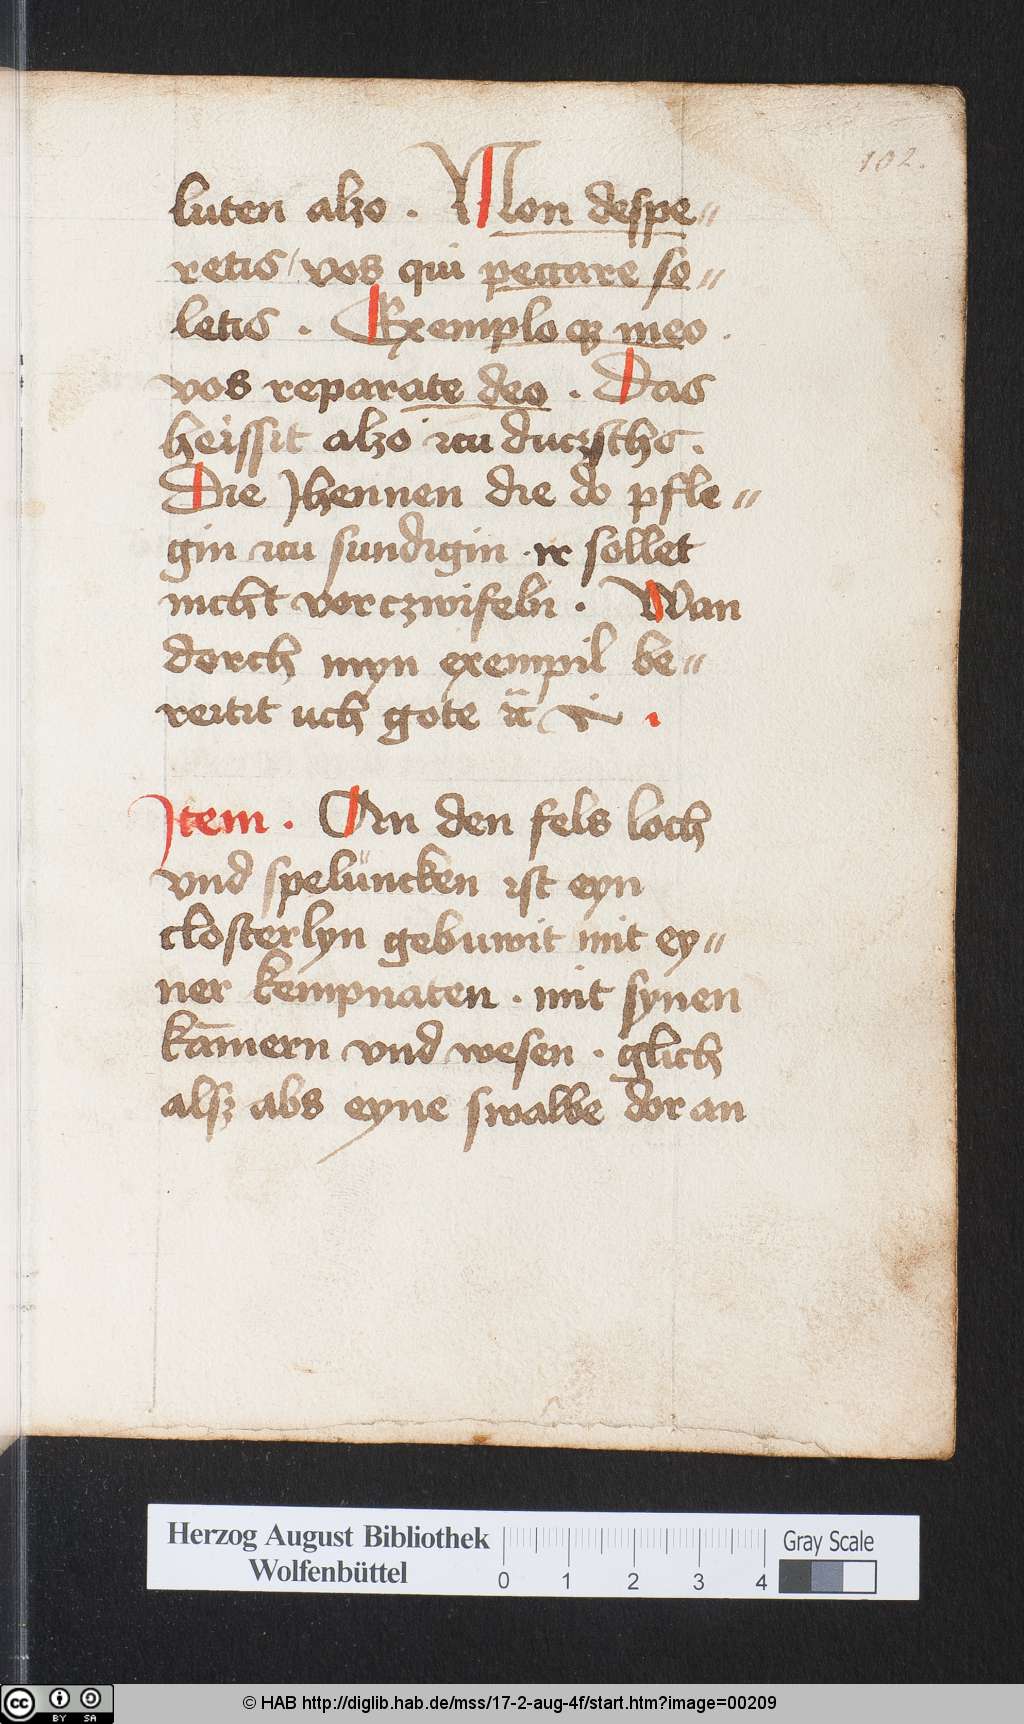 102.
luten alzo . Non despe=
retis / vos qui peccare so=
letis . Exemplo qz meo .
vos reparate deo . Das
heissit alzo zcu duczsche .
Die Jhennen die do pfle=
gin zcu sundigin . ir sollet
nicht vorczwifeln . Wan
dorch myn exempil be=
reitit uch gote
Item . An den fels loch
vnd speluncken ist eyn
closterlyn gebuwit mit ey=
ner kempnaten . mit synen
kāmern vnd wesen . glich
alsz abs eyne swalbe dor an
Herzog August Bibliothek
Wolfenbüttel
0 1 2 3 4
Gray Scale
cc BY SA
© HAB http://diglib.hab.de/mss/17-2-aug-4f/start.htm?image=00209